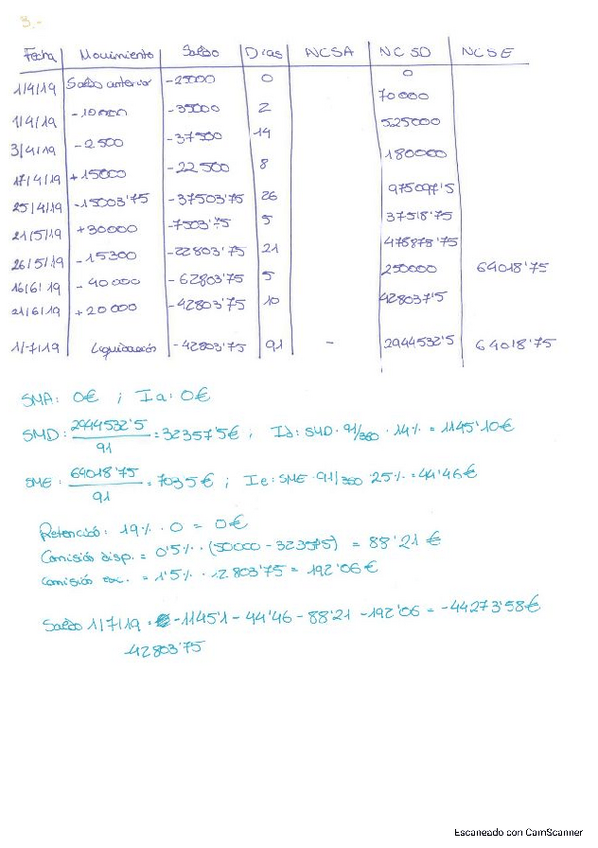 3.-
Fecha Movimiento Saldo Días NCSA NCSD NCSE
1/4/19 Saldo anterior -25000 0 0
1/4/19 -10000 -35000 2 70000
3/4/19 -2500 -37500 14 525000
17/4/19 +15000 -22500 8 180000
25/4/19 -15003'75 -37503'75 26 975097'5
21/5/19 +30000 -7503'75 5 37518'75
26/5/19 -15300 -22803'75 21 478878'75
16/6/19 -40000 -62803'75 5 250000 64018'75
21/6/19 +20000 -42803'75 10 428037'5
1/7/19 Liquidación -42803'75 91 - 2944532'5 64018'75
SMA: 0€ ; Ia: 0€
SMD: 2944532'5 / 91 = 32357'5€ ; Id: SMD · 91/360 · 14% = 1145'10€
SME: 64018'75 / 91 = 703'5€ ; Ie: SME · 91/360 25% = 44'46€
Retenció: 19% · 0 = 0€
Comisión disp. = 0'5% · (50000 - 32357'5) = 88'21€
Comisión exc. = 1'5% · 12803'75 = 192'06€
Saldo 1/7/19 = -1145'1 - 44'46 - 88'21 - 192'06 = -44273'58€
-42803'75
Escaneado con CamScanner